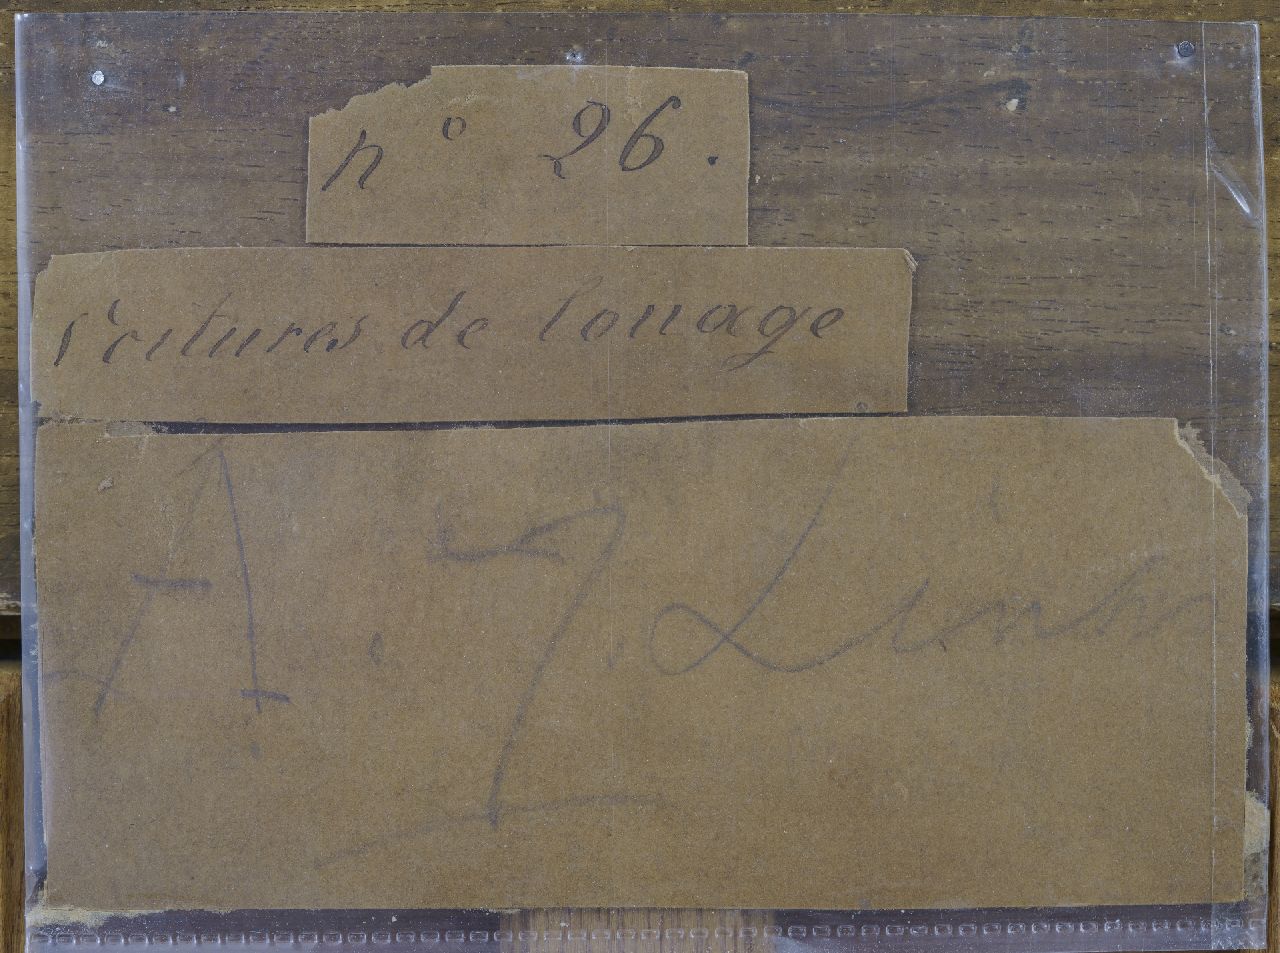 n° 26.
Voitures de louage
A. J. Link